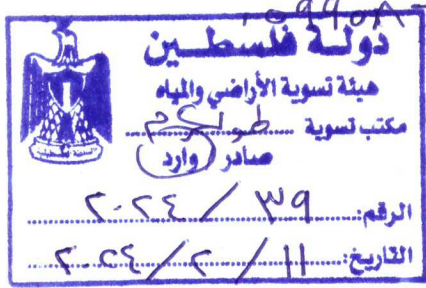 دولة فلسطين
هيئة تسوية الأراضي والمياه
مكتب تسوية طولكرم
صادر / وارد
الرقم: ٣٩ / ٢٠٢٤
التاريخ: ١١ / ٢ / ٢٠٢٤